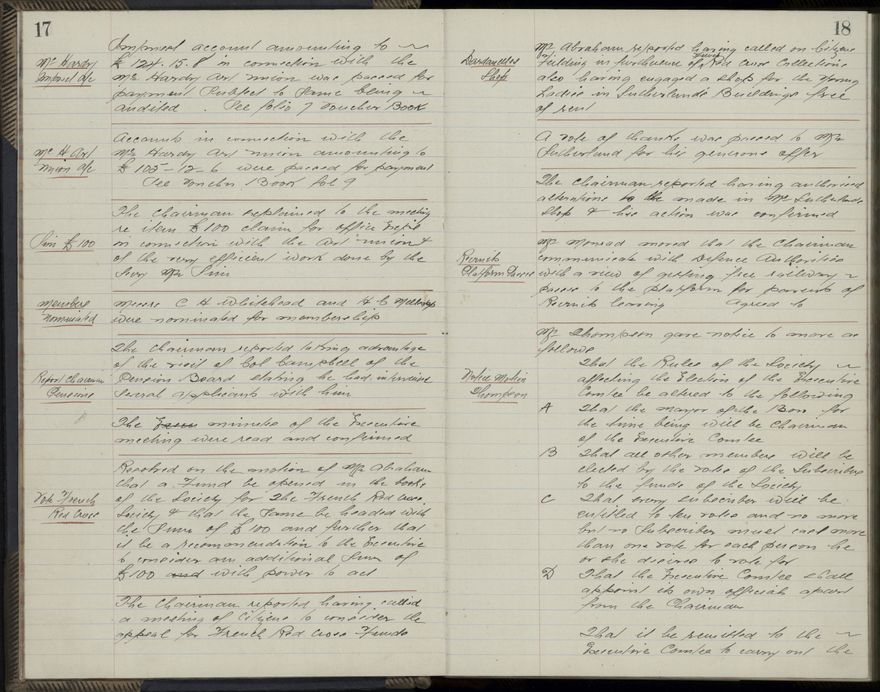 17
Imprest account amounting to ~
Mc Hardy
Imprest a/c
£ 124.15.8 in connection with the
Mc Hardy Art Union was passed for
payment subject to same being ~
audited. See folio 7 Voucher Book
Accounts in connection with the
Mc H Art
Union a/c
Mc Hardy Art Union amounting to
£ 105-12-6 were passed for payment
See Voucher Book fol 9
The Chairman explained to the meeting
re item £100 claim for office
Sim £100
in connection with the Art Union &
of the very efficient work done by the
Secy Mr Sim
Members
Nominated
Messrs C H Whitehead and H C
were nominated for membership
The Chairman reported taking advantage
of the visit of Col Campbell of the
Report Chairman
Pensions
Pension Board stating he had interviewed
several applicants with him
The minutes of the Executive
meeting were read and confirmed
Resolved on the motion of Mr Abraham
that a Fund be opened in the books
Vote French
Red Cross
of the Society for The French Red Cross
Society & that the same be headed with
the sum of £100 and further that
it be a recommendation to the Executive
to consider an additional sum of
£100 and with power to act
The Chairman reported having called
a meeting of Citizens to consider the
appeal for French Red Cross Funds
18
Mr Abraham reported having called on Citizens
Dardanelles
Shop
building in furtherance of French Red Cross Collections
also having engaged a shop for the Young
Ladies in Sutherlands Buildings free
of rent
A vote of thanks was passed to Mr
Sutherland for his generous offer
The Chairman reported having authorised
alterations to be made in Mr Sutherlands
Shop & his action was confirmed
Mr moved that the Chairman
Recruits
Platform
communicate with Defence Authorities
with a view of getting free railway ~
passes to the platform for parents of
Recruits leaving Agreed to
Mr Thompson gave notice to move as
follows
That the Rules of the Society ~
Notice Motion
Thompson
affecting the Election of the Executive
Comtee be altered to the following
A That the mayor of the Boro for
the time being will be Chairman
of the Executive Comtee
B That all other members will be
elected by the votes of the Subscribers
to the funds of the Society
C That every subscriber will be
entitled to ten votes and no more
but no Subscriber must cast more
than one vote for each person he
or she desires to vote for
D That the Executive Comtee shall
appoint its own officials apart
from the Chairman
That it be remitted to the ~
Executive Comtee to carry out the